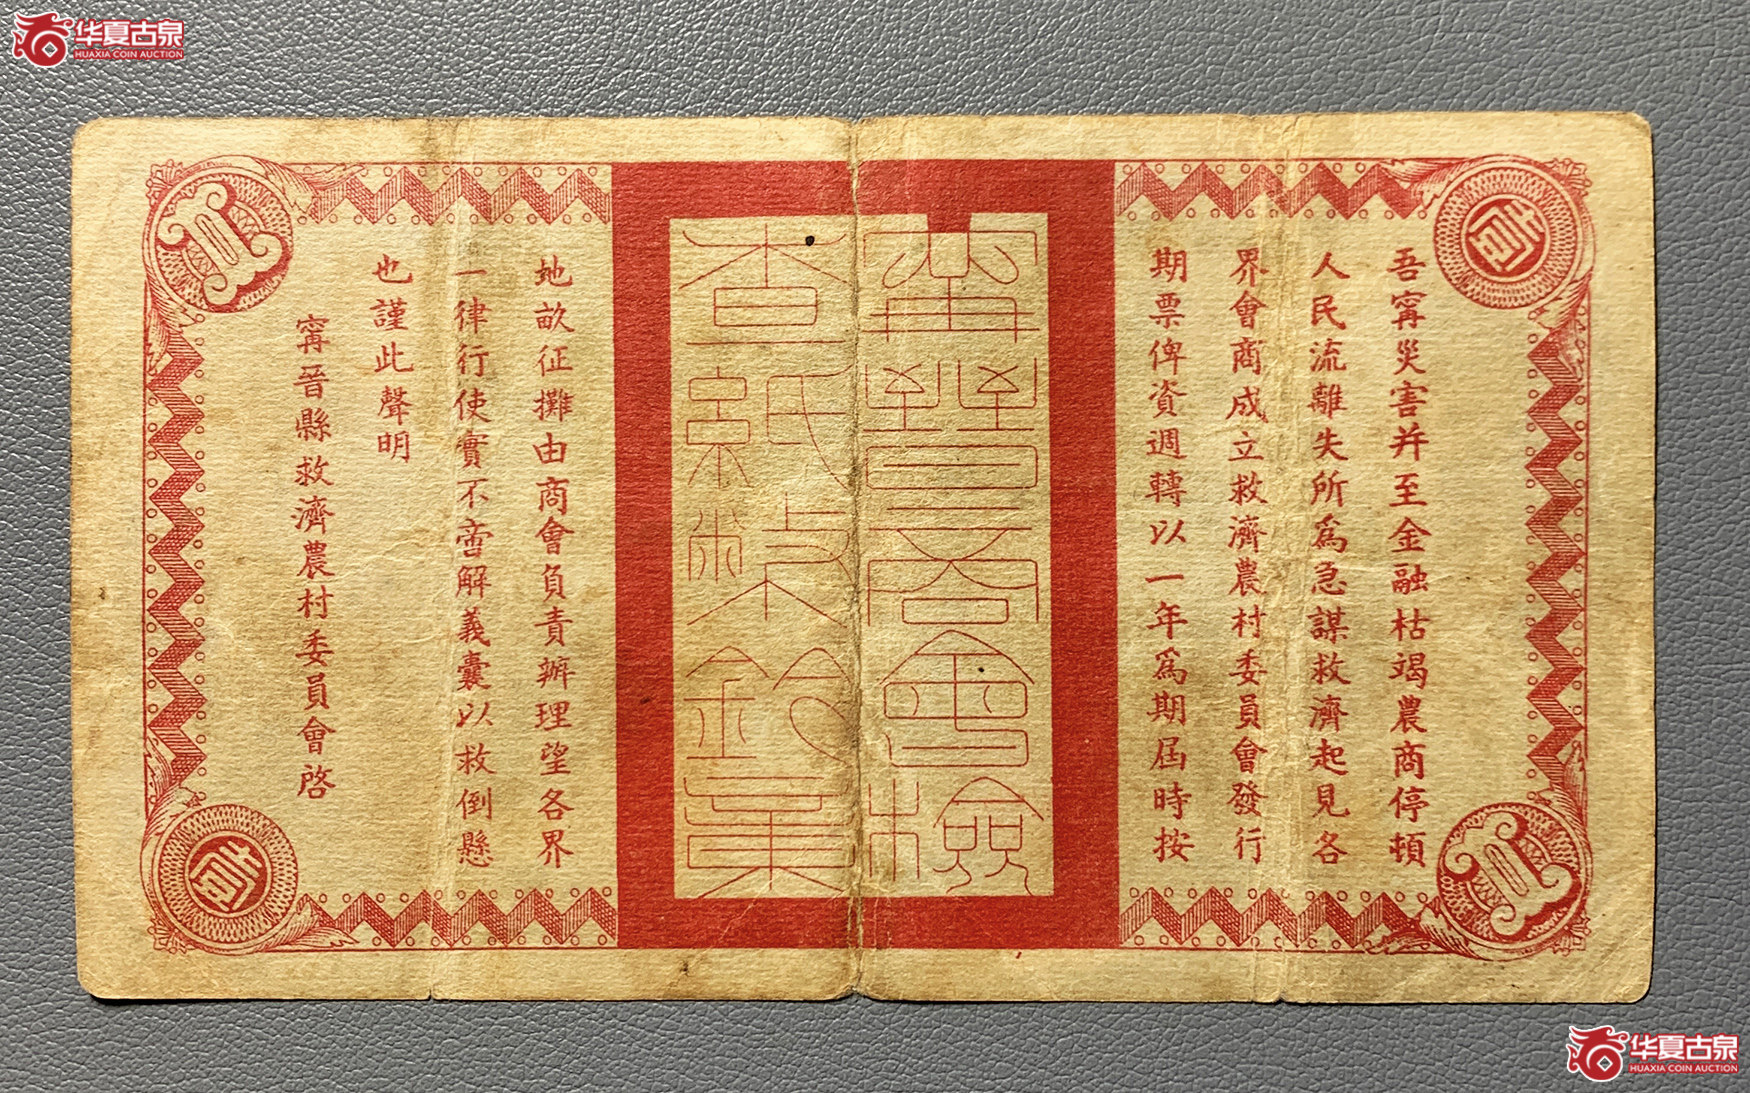 华夏古泉
HUAXIA COIN AUCTION
吾甯災害并至金融枯竭農商停頓
人民流離失所爲急謀救濟起見各
界會商成立救濟農村委員會發行
期票俾資週轉以一年爲期屆時按
甯晉商會檢
查紙幣鈐章
地畝征攤由商會負責辦理望各界
一律行使實不啻解義囊以救倒懸
也謹此聲明
甯晉縣救濟農村委員會啓
华夏古泉
HUAXIA COIN AUCTION